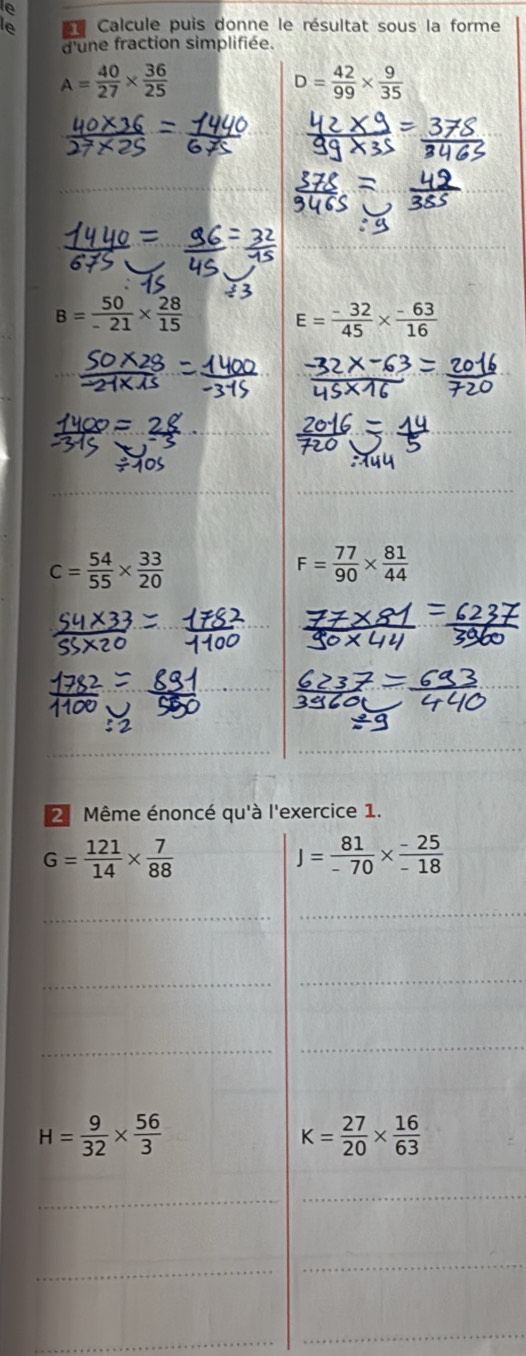 le
le
1 Calcule puis donne le résultat sous la forme
d'une fraction simplifiée.
A = 40/27 × 36/25
40×36/27×25 = 1440/675
1440/675 = 96/45 = 32/15
:15 ÷3
B = 50/-21 × 28/15
50×28/-21×15 = 1400/-315
1400/-315 = 28/-3.
÷105
C = 54/55 × 33/20
54×33/55×20 = 1782/1100
1782/1100 = 891/550.
:2
D = 42/99 × 9/35
42×9/99×35 = 378/3465
378/3465 = 42/385
:9
E = -32/45 × -63/16
-32×-63/45×16 = 2016/720
2016/720 = 14/5
:144
F = 77/90 × 81/44
77×81/90×44 = 6237/3960
6237/3960 = 693/440
÷9
2 Même énoncé qu'à l'exercice 1.
G = 121/14 × 7/88
H = 9/32 × 56/3
J = 81/-70 × -25/-18
K = 27/20 × 16/63